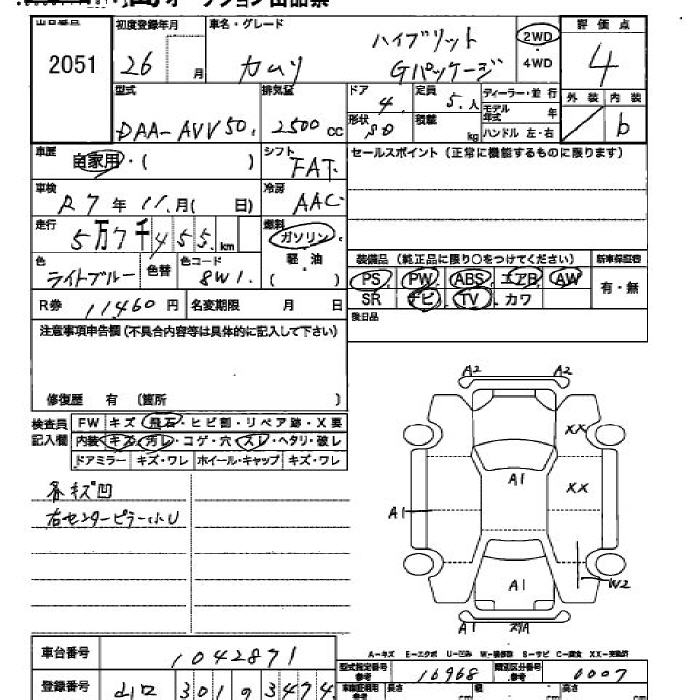 出品番号 初度登録年月 車名・グレード 評価点
2051 26 月 カムリ ハイブリット Gパッケージ 2WD ・ 4WD 4
型式 排気量 ドア 定員 ディーラー・並行 外装 内装
DAA-AVV50. 2500 cc 4. 5.人 モデル年式 年 b
形状 SD 積載 kg ハンドル 左・右
車歴 自家用・( ) シフト FAT. セールスポイント (正常に機能するものに限ります)
車検 R7年 11.月( 日) 冷房 AAC
走行 5万7千455. km 燃料 ガソリン. 軽・油 ( )
色 ライトブルー 色替 色コード 8W1.
装備品 (純正品に限り○をつけてください) 新車保証書
PS. PW. ABS. エアB. AW 有・無
SR ナビ. TV. カワ
R券 11460円 名変期限 月 日 後日品
注意事項申告欄 (不具合内容等は具体的に記入して下さい)
修復歴 有 (箇所 )
検査員記入欄 FW キズ・飛石・ヒビ割・リペア跡・X要
内装 キズ・汚レ・コゲ・穴・スレ・ヘタリ・破レ
ドアミラー キズ・ワレ ホイール・キャップ キズ・ワレ
各キズ凹
右センターピラー小U
A2 A2
XX
A1 XX
A1
A1 W2
A1
A-キズ E-エクボ U-凹み W-補修跡 S-サビ C-腐食 XX-交換済
車台番号 1042871 型式指定番号 参考 16968 類別区分番号 参考 0007
登録番号 山口 301 ワ 3474 長さ cm 幅 cm 高さ cm